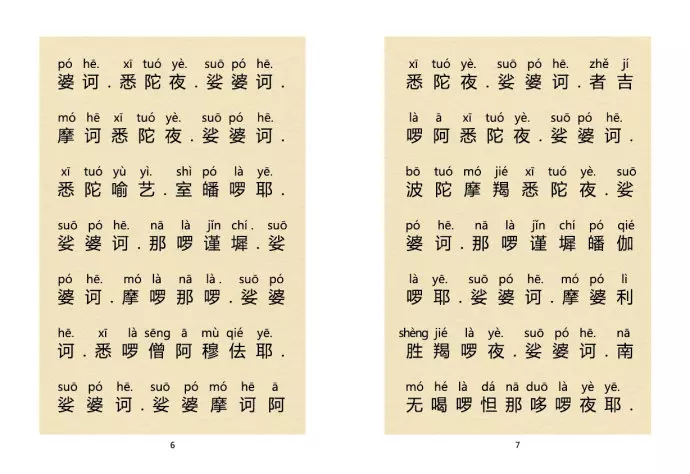 pó hē. xī tuó yè. suō pó hē.
婆 诃 . 悉 陀 夜 . 娑 婆 诃 .
mó hē xī tuó yè. suō pó hē.
摩 诃 悉 陀 夜 . 娑 婆 诃 .
xī tuó yù yì. shì pó là yē.
悉 陀 喻 艺 . 室 皤 啰 耶 .
suō pó hē. nā là jǐn chí. suō
娑 婆 诃 . 那 啰 谨 墀 . 娑
pó hē. mó là nā là. suō pó
婆 诃 . 摩 啰 那 啰 . 娑 婆
hē. xī là sēng ā mù qié yē.
诃 . 悉 啰 僧 阿 穆 佉 耶 .
suō pó hē. suō pó mó hē ā
娑 婆 诃 . 娑 婆 摩 诃 阿
6
xī tuó yè. suō pó hē. zhě jí
悉 陀 夜 . 娑 婆 诃 . 者 吉
là ā xī tuó yè. suō pó hē.
啰 阿 悉 陀 夜 . 娑 婆 诃 .
bō tuó mó jié xī tuó yè. suō
波 陀 摩 羯 悉 陀 夜 . 娑
pó hē. nā là jǐn chí pó qié
婆 诃 . 那 啰 谨 墀 皤 伽
là yē. suō pó hē. mó pó lì
啰 耶 . 娑 婆 诃 . 摩 婆 利
shèng jié là yè. suō pó hē. nā
胜 羯 啰 夜 . 娑 婆 诃 . 南
mó hé là dá nā duō là yè yē.
无 喝 啰 怛 那 哆 啰 夜 耶 .
7